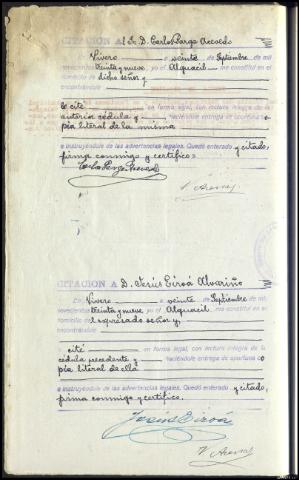 CITACION A l Sr. D. Carlos Parga Acevedo
Vivero a veinte Septiembre de mil
novecientos treinta y nueve yo el Alguacil me constituí en el
domicilio dicho señor y
encontrándole
le cité en forma legal, con lectura íntegra de la
anterior cédula y haciéndole entrega de oportuna co
pia literal de la misma
e instruyéndole de las advertencias legales. Quedó enterado y citado,
firma conmigo y certifico.
Carlos Parga Acevedo
CITACION A D. Jesús Ciroá Alvariño
En Vivero a veinte de Septiembre de mil
novecientos treinta y nueve yo el Alguacil me constituí en el
domicilio expresado señor y,
encontrándole
cité en forma legal, con lectura íntegra de la
cédula precedente y haciéndole entrega de oportuna co
pia literal de ella
e instruyéndole de las advertencias legales. Quedó enterado y citado,
firma conmigo y certifico.
Jesús Ciroá